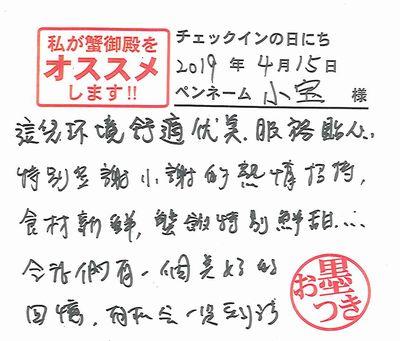 私が蟹御殿を
オススメ
します!!
チェックインの日にち
2019 年 4月15日
ペンネーム 小宝 様
這兒环境舒適优美.服務貼心.
特別是謝小謝的熱情招待,
食材新鮮,蟹飯特別鮮甜....
令我們有一個美好的
回憶,有机会一定到訪
お墨つき